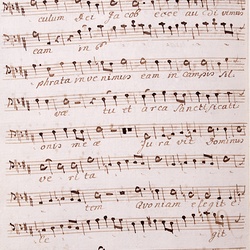 culum Dei Jacob ecce audivimus
eam in e
phrata invenimus eam in campis sil
væ tu et arca Sanctificati
onis meæ Juravit Dominus
verita
tem Quoniam elegit e
le git